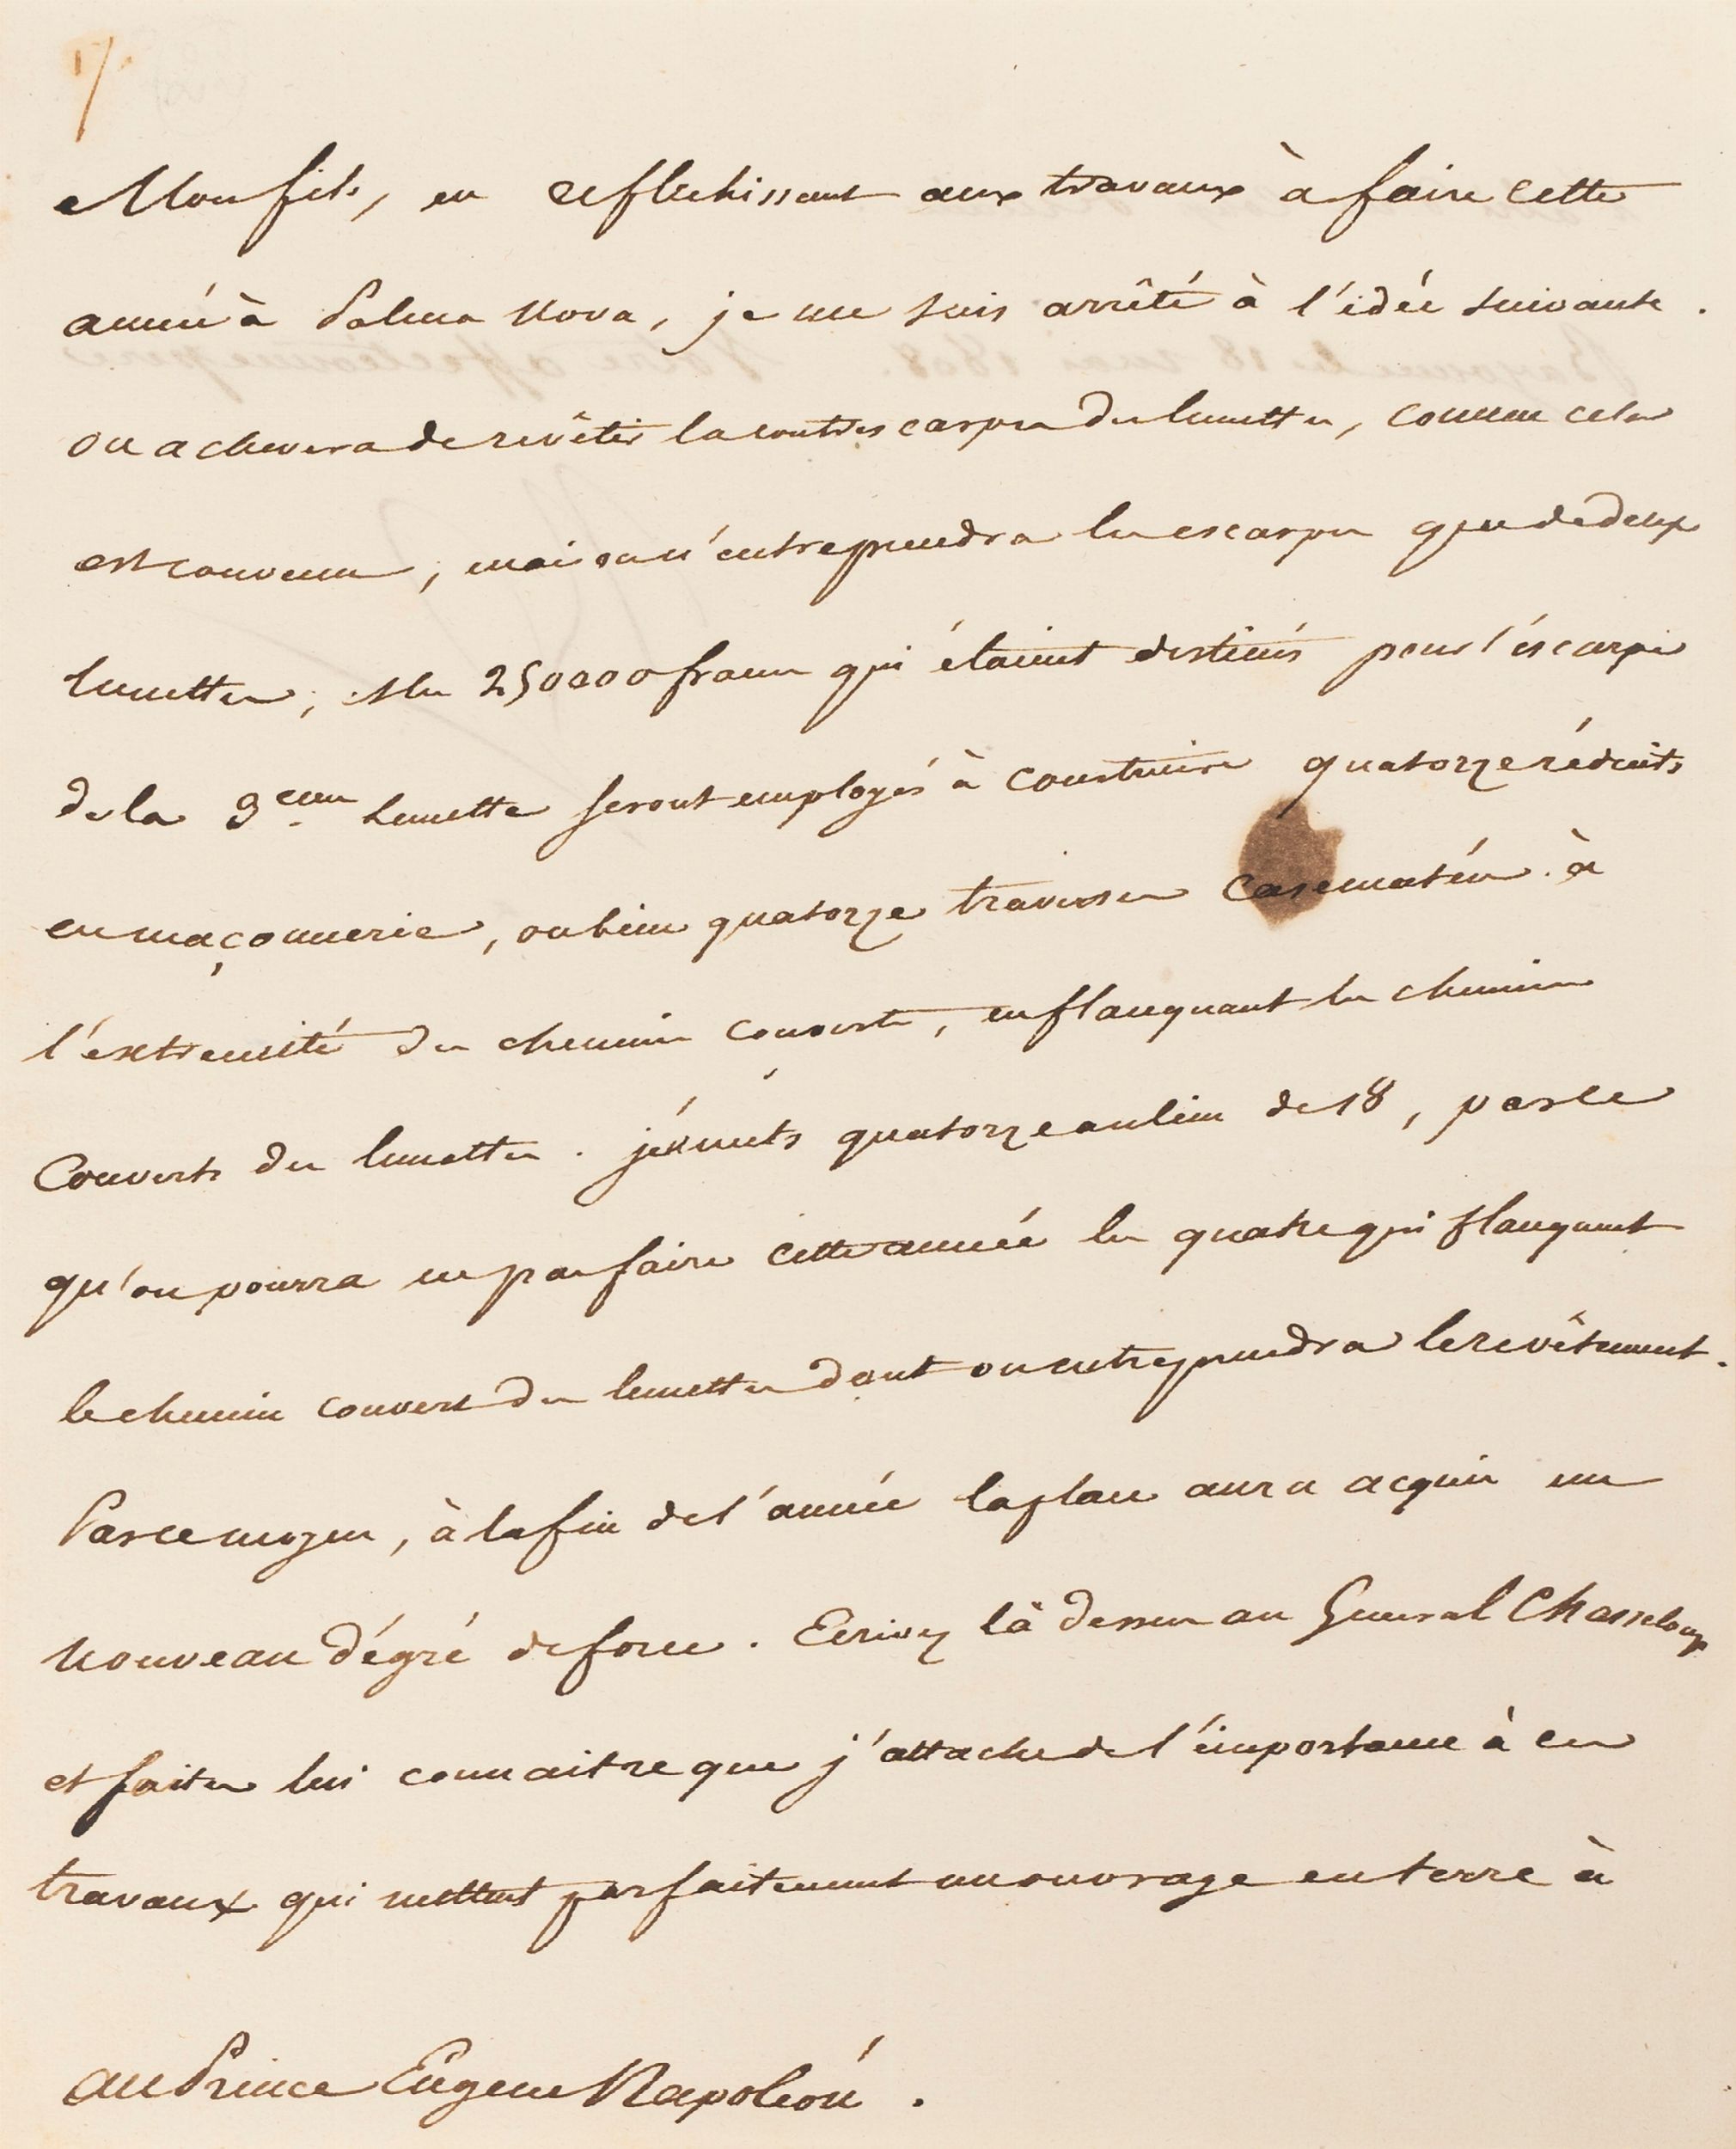 17.
Mon fils, en reflechissant aux travaux à faire cette
année à Palma Nova, je me suis arrêté à l'idée suivante.
on achevera de revêtir la contrescarpe des lunettes, comme cela
est convenu; mais on n'entreprendra les escarpes que de deux
lunettes; et les 250000 francs qui étaient destinés pour l'éscarpe
de la 3eme lunette seront employés à construire quatorze réduits
en maçonnerie, ou bien quatorze traverses casematées à
l'extremité des chemins couverts, en flanquant les chemins
couverts des lunettes. je mets quatorze au lieu de 18, parce
qu'on pourra ne pas faire cette année les quatre qui flanquent
le chemin couvert des lunettes dont on entreprendra le revêtement.
Par ce moyen, à la fin de l'année la place aura acquis un
nouveau dégré de force. Ecrivez là dessus au General Chasseloup
et faites lui connaitre que j'attache de l'importance à ces
travaux qui mettent parfaitement un ouvrage en terre à
au Prince Eugene Napoléon.